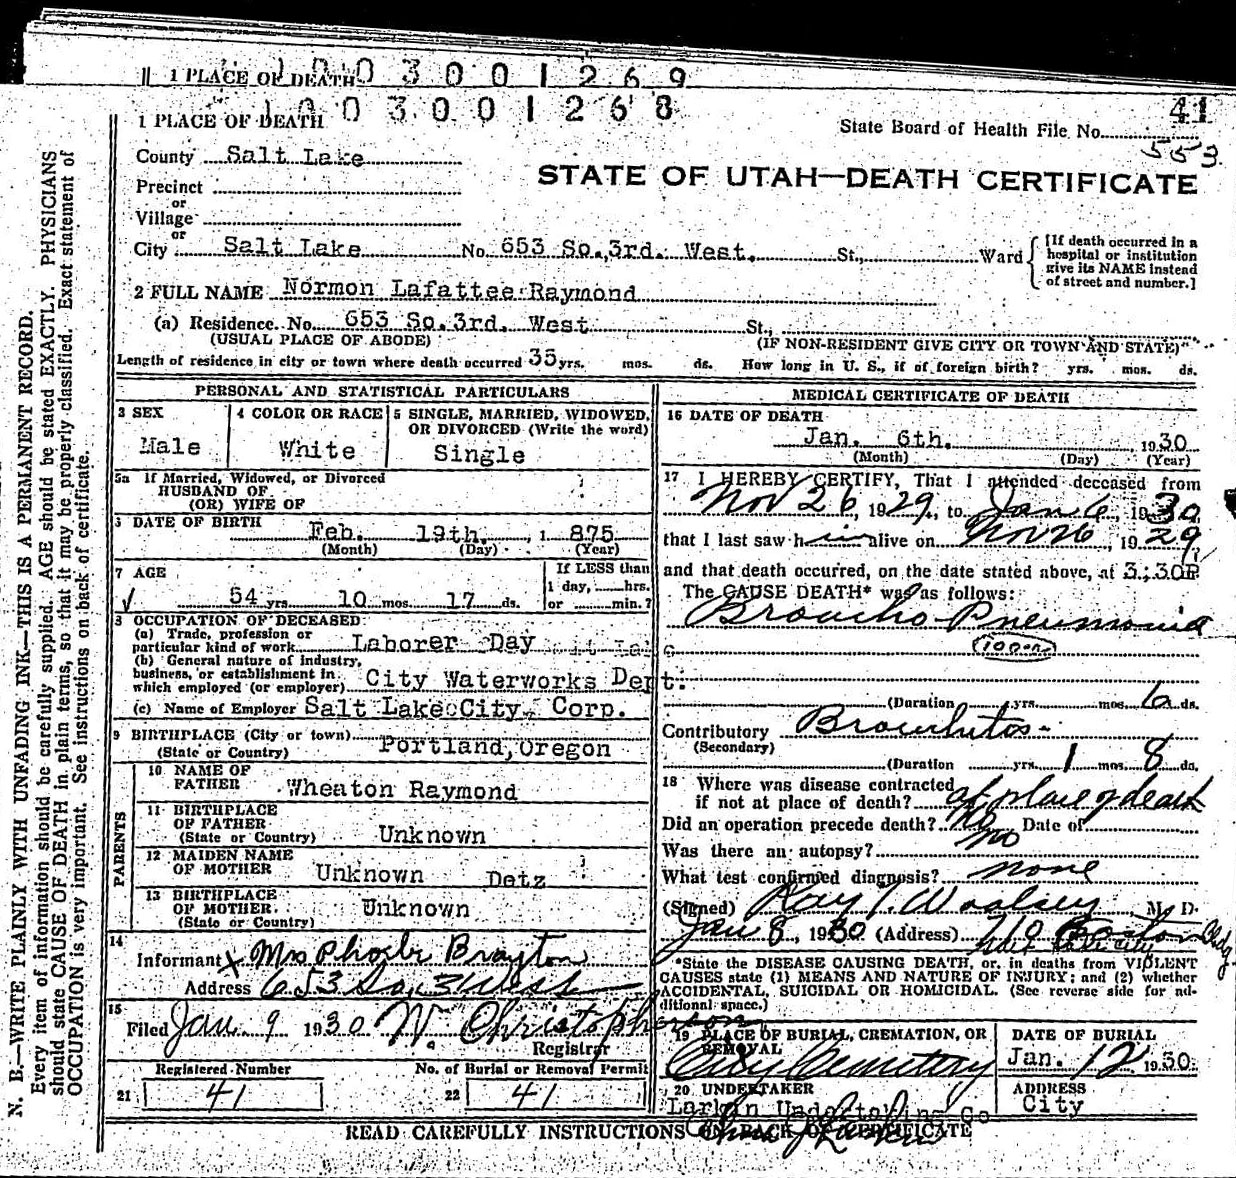 1 PLACE OF DEATH 1003001269
1003001268
1 PLACE OF DEATH
41
State Board of Health File No. 553
County Salt Lake
STATE OF UTAH—DEATH CERTIFICATE
Precinct
or
Village
or
City Salt Lake No. 653 So. 3rd. West. St., Ward
[If death occurred in a
hospital or institution
give its NAME instead
of street and number.]
2 FULL NAME Normon Lafattee Raymond
(a) Residence. No. 653 So. 3rd. West St.,
(USUAL PLACE OF ABODE) (IF NON-RESIDENT GIVE CITY OR TOWN AND STATE)
Length of residence in city or town where death occurred 35 yrs. mos. ds. How long in U. S., if of foreign birth? yrs. mos. ds.
PERSONAL AND STATISTICAL PARTICULARS
3 SEX
Male
4 COLOR OR RACE
White
5 SINGLE, MARRIED, WIDOWED,
OR DIVORCED (Write the word)
Single
5a If Married, Widowed, or Divorced
HUSBAND OF
(OR) WIFE OF
6 DATE OF BIRTH
Feb. 19th. 1 875
(Month) (Day) (Year)
7 AGE
54 yrs 10 mos 17 ds.
If LESS than
1 day, hrs.
or min.?
8 OCCUPATION OF DECEASED
(a) Trade, profession or
particular kind of work Laborer Day
(b) General nature of industry,
business, or establishment in
which employed (or employer) City Waterworks Dept.
(c) Name of Employer Salt Lake City Corp.
9 BIRTHPLACE (City or town)
(State or Country) Portland, Oregon
PARENTS
10 NAME OF
FATHER Wheaton Raymond
11 BIRTHPLACE
OF FATHER
(State or Country) Unknown
12 MAIDEN NAME
OF MOTHER Unknown Detz
13 BIRTHPLACE
OF MOTHER
(State or Country) Unknown
14
Informant x Mrs Phoebe Brayton
Address 653 So, 3 West
15
Filed Jan. 9 1930 W. Christopherson
Registrar
Registered Number
21 41
No. of Burial or Removal Permit
22 41
MEDICAL CERTIFICATE OF DEATH
16 DATE OF DEATH
Jan. 6th. 1930
(Month) (Day) (Year)
17 I HEREBY CERTIFY, That I attended deceased from
Nov 26, 1929, to Jan 6, 1930
that I last saw him alive on Nov 26, 1929,
and that death occurred, on the date stated above, at 3:30P
The CAUSE DEATH* was as follows:
Broncho-Pneumonia
(Duration yrs. mos. 6 ds.
Contributory Bronchitis
(Secondary)
(Duration yrs. 1 mos. 8 ds.
18 Where was disease contracted
if not at place of death? at place of death
Did an operation precede death? No Date of
Was there an autopsy? no
What test confirmed diagnosis? none
(Signed) Ray T. Woolsey, M. D.
Jan 8, 1930 (Address) Boston Bldg.
*State the DISEASE CAUSING DEATH, or, in deaths from VIOLENT
CAUSES state (1) MEANS AND NATURE OF INJURY; and (2) whether
ACCIDENTAL, SUICIDAL OR HOMICIDAL. (See reverse side for ad-
ditional space.)
19 PLACE OF BURIAL, CREMATION, OR
REMOVAL
City Cemetery
DATE OF BURIAL
Jan. 12 1930
20 UNDERTAKER
Larkin Undertaking Co
ADDRESS
City
READ CAREFULLY INSTRUCTIONS ON BACK OF CERTIFICATE
N. B.—WRITE PLAINLY WITH UNFADING INK—THIS IS A PERMANENT RECORD.
Every item of information should be carefully supplied. AGE should be stated EXACTLY. PHYSICIANS
should state CAUSE OF DEATH in plain terms, so that it may be properly classified. Exact statement of
OCCUPATION is very important. See instructions on back of certificate.